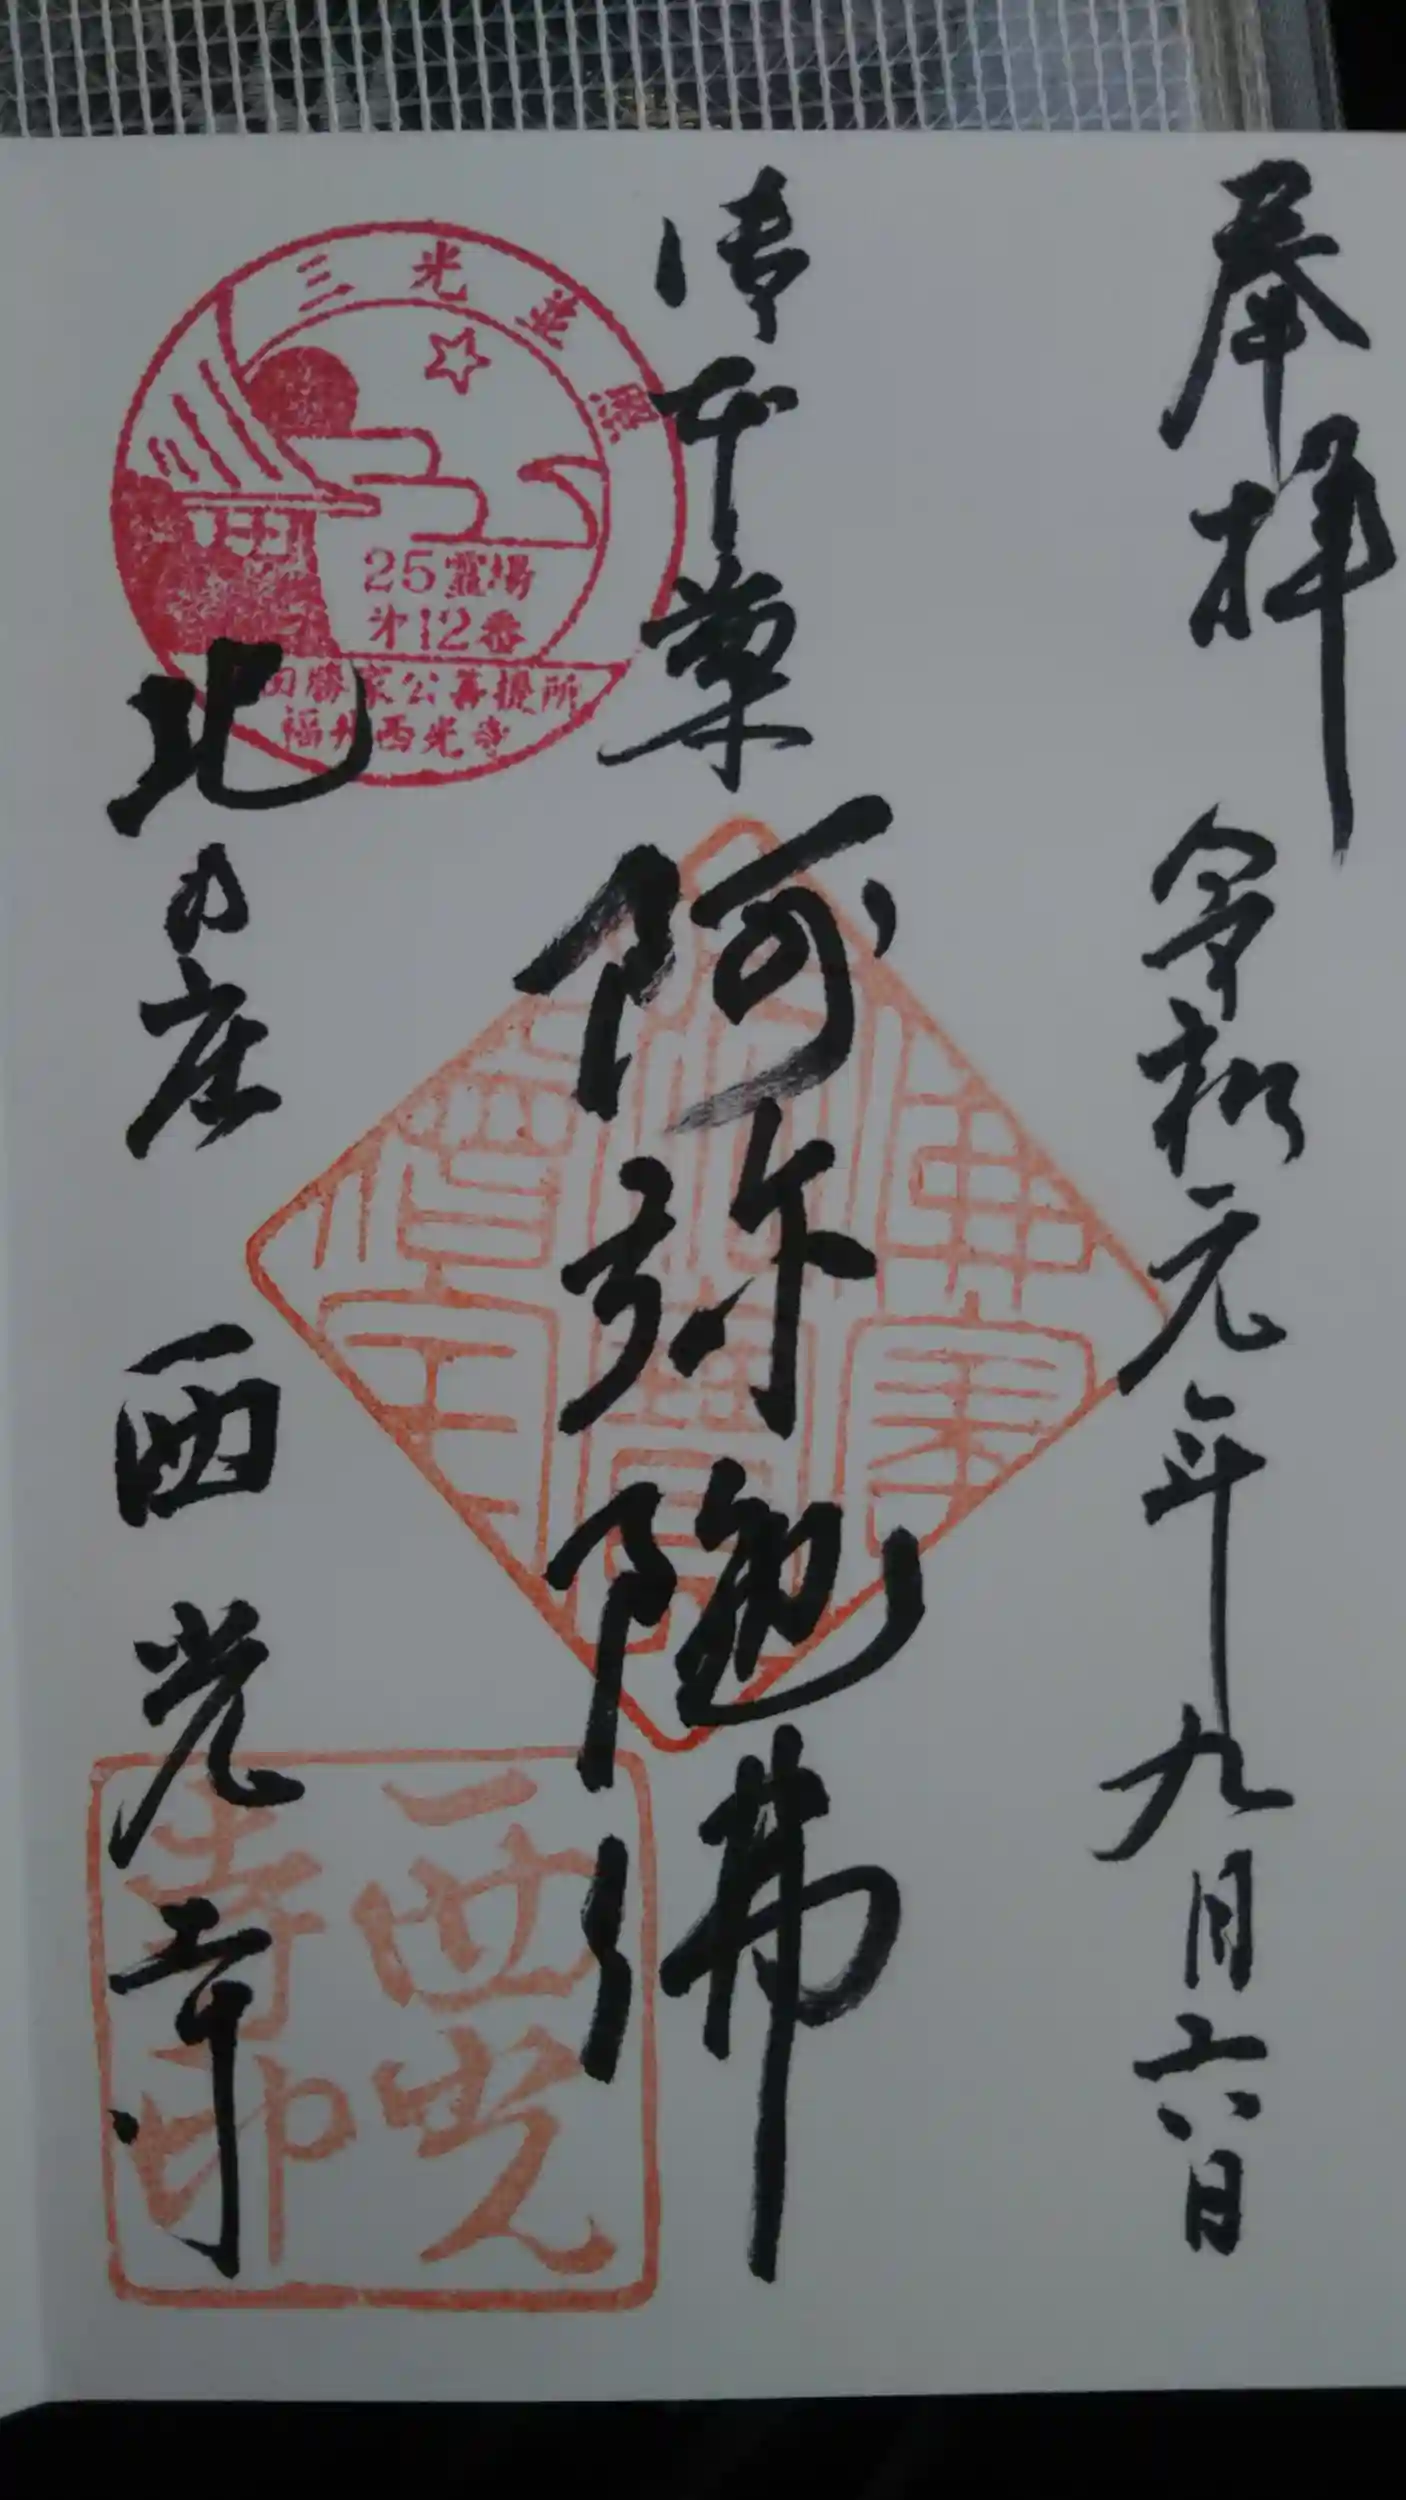 奉拝 令和元年九月六日
阿弥陀佛
北の庄 西光寺
三光並
25霊場
㐧12番
田勝家公菩提所
福井西光寺
西光寺印